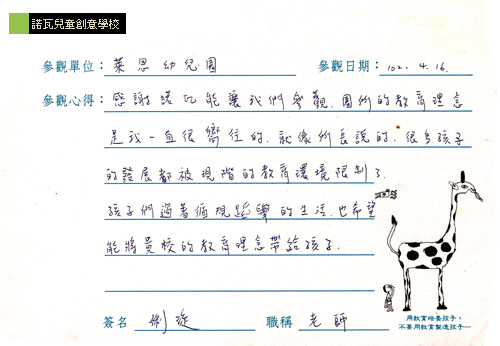 諾瓦兒童創意學校
參觀單位：萊恩幼兒園 參觀日期：102. 4. 16.
參觀心得：感謝諾瓦能讓我們參觀，園所的教育理念
是我一直很嚮往的，就像所長說的，很多孩子
的發展都被現階的教育環境限制了
孩子們過著循規蹈舉的生活，也希望
能將貴校的教育理念帶給孩子.
簽名 職稱 老師
用教育培養孩子，
不要用教育製造孩子